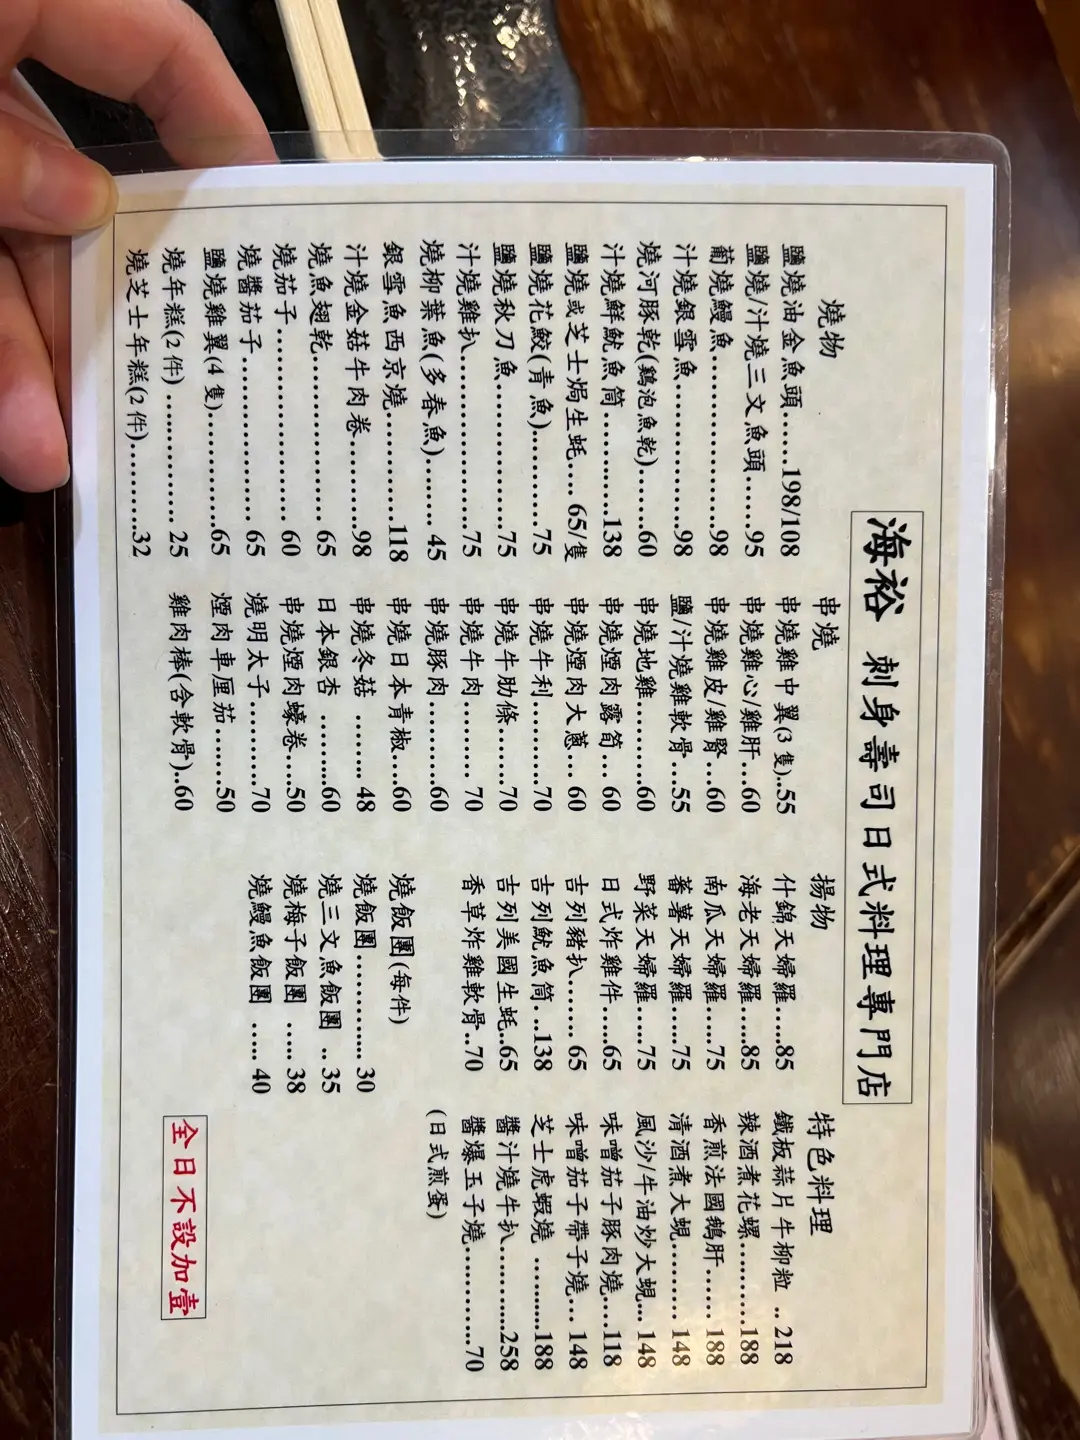 海裕 刺身壽司日式料理專門店
燒物
鹽燒油金魚頭......198/108
鹽燒/汁燒三文魚頭......95
葡燒鰻魚................98
汁燒銀雪魚..............98
燒河豚乾(鷄泡魚乾)......60
汁燒鮮魷魚筒...........138
鹽燒或芝士焗生蚝... 65/隻
鹽燒花鮫(青魚).........75
鹽燒秋刀魚..............75
汁燒雞扒................75
燒柳葉魚(多春魚)...... 45
銀雪魚西京燒..........118
汁燒金菇牛肉卷.........98
燒魚翅乾................ 65
燒茄子.................. 60
燒醬茄子................ 65
鹽燒雞翼(4隻)...........65
燒年糕(2件) ............ 25
燒芝士年糕(2件).........32
串燒
串燒雞中翼(3隻)...55
串燒雞心/雞肝...60
串燒雞皮/雞腎...60
鹽/汁燒雞軟骨...55
串燒地雞..........60
串燒煙肉露筍... 60
串燒煙肉大蔥... 60
串燒牛利..........70
串燒牛肋條......70
串燒牛肉......... 70
串燒豚肉..........60
串燒日本青椒....60
串燒冬菇 ........ 48
日本銀杏 .........60
串燒煙肉蠔卷....50
燒明太子..........70
煙肉車厘茄.......50
雞肉棒(含軟骨)..60
揚物
什錦天婦羅.....85
海老天婦羅.....85
南瓜天婦羅.....75
蕃薯天婦羅.....75
野菜天婦羅.....75
日式炸雞件.....65
吉列豬扒....... 65
吉列魷魚筒...138
吉列美國生蚝..65
香草炸雞軟骨..70
燒飯團(每件)
燒飯團............ 30
燒三文魚飯團 .. 35
燒梅子飯團 ..... 38
燒鰻魚飯團 ..... 40
特色料理
鐵板蒜片牛柳粒 .. 218
辣酒煮花螺..........188
香煎法國鵝肝...... 188
清酒煮大蜆......... 148
風沙/牛油炒大蜆... 148
味噌茄子豚肉燒....118
味噌茄子帶子燒... 148
芝士虎蝦燒 .........188
醬汁燒牛扒...........258
醬爆玉子燒............70
(日式煎蛋)
全日不設加壹